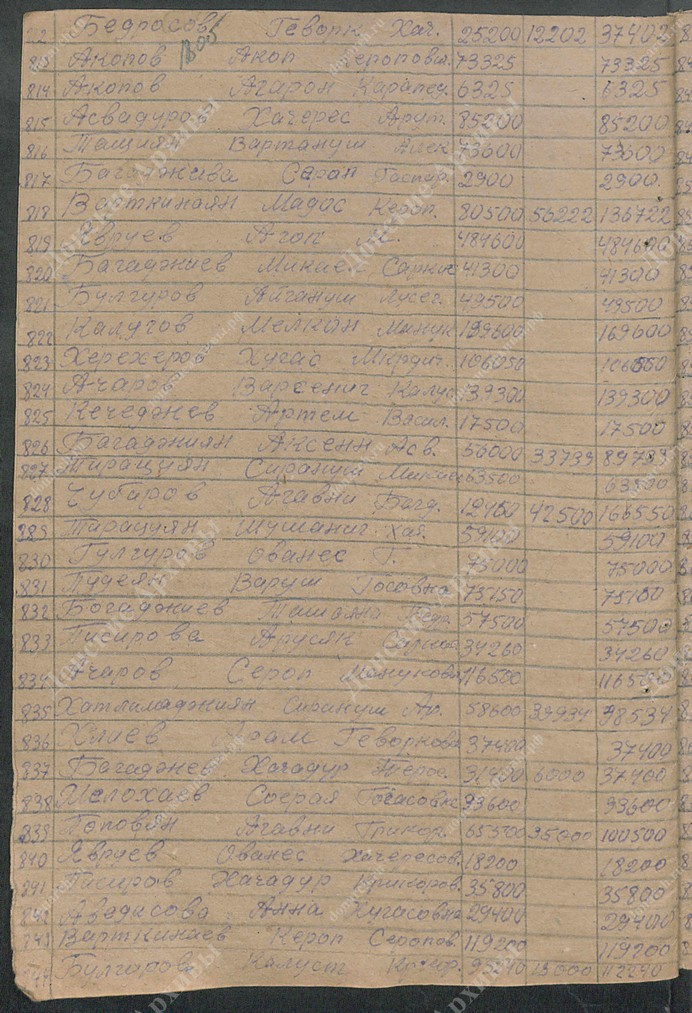 Бедросов Геворк Хач. 25200 12202 37402
813 Акопов Акоп Серопович 73325 73325
814 Акопов Агарон Карапед. 6325 6325
815 Асвадуров Хачерес Арут. 85200 85200
816 Ташчиян Вартануш Алек. 73600 73600
817 Багаджиева Сарап Гаспар. 2900 2900
818 Варткинаян Мадос Кероп. 80500 56222 136722
819 Явруев Агоп 484600 484600
820 Багаджиев Микиел Саркис 41300 41300
821 Булгуров Айгануш Лусег. 49500 49500
822 Калугов Мелкон Минук 169600
823 Херехеров Хугас Мкрдич. 106050 106050
824 Ачаров Варсениг Калус 139300 139300
825 Кечеджиев Артем Васил. 17500 17500
826 Багаджиян Аксенн Асв. 56000 33733 89733
827 Тирацуян Сирануш Микие 63500 63500
828 Чубаров Агавни Багд. 42500
Тарацуян Шушаниг Хач. 59100 59100
830 Гулгуров Ованес Г. 75000 75000
831 Пудеян Варуш Госовна 75150
832 Богаджиев Ташьяна 57500 57500
833 Писирова Апусяк Сарков 34260 34260
834 Ачаров Сероп Манукович 116500 116500
835 Хатламаджиян Сирануш Ал. 58600 39934 98534
836 Хиев Арам Геворкович 37400 37400
837 Багаджиев Хачадур Теров. 31400 6000 37400
838 Мелохаев Соерая Гогасовна 93600 93600
839 Поповян Агавни Григор. 65500 35000 100500
840 Явруев Ованес Хачересов. 18200 18200
841 Писиров Хачадур Григоров. 35800 35800
842 Аведисова Анна Хугасовна 29400 29400
843 Варткинаев Кероп Серопов. 119200 119200
Булгаров Калуст Кркор. 112290